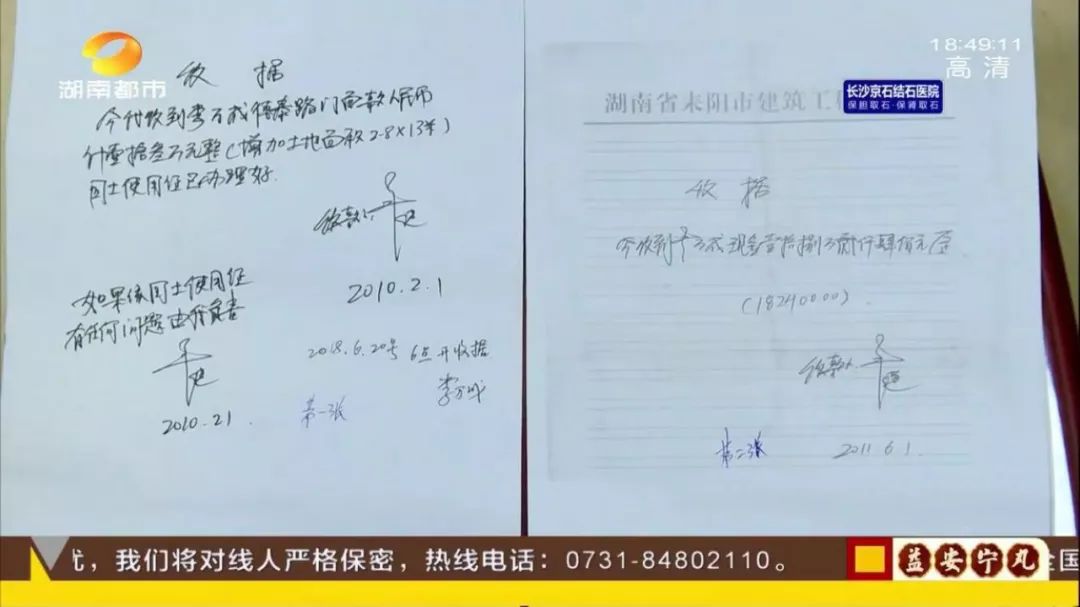 湖南都市
18:49:11
高清
长沙京石结石医院
保担取石·保肾取石
收 据
今付收到李万成德泰路门面款人民币
计壹拾叁万元整(增加土地面积2.8×13米)
国土使用证已办理好.
收款人:
2010.2.1
如果该国土使用证
有任何问题由我负责
2010.2.1
2018.6.20号 6点开收据
李万成
第一张
湖南省耒阳市建筑工程
收 据
今收到李万成现金壹拾捌万贰仟肆佰元正
(18240000)
收款人
第二张
2011.6.1
,我们将对线人严格保密,热线电话:0731-84802110。
益安宁丸
全国